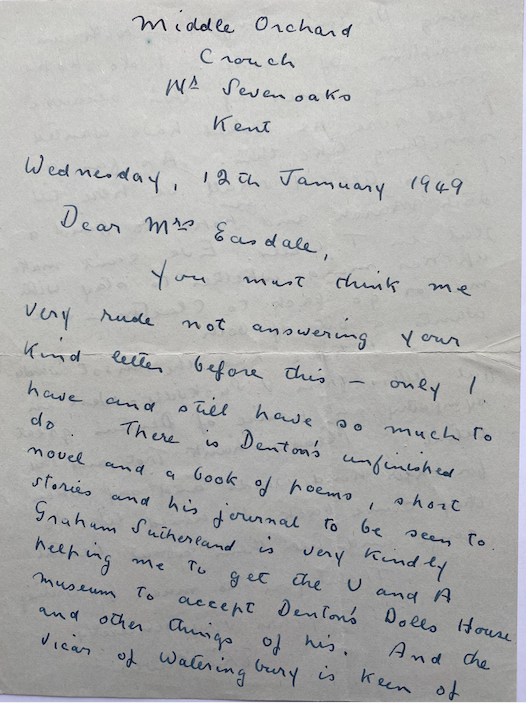 Middle Orchard
Crouch
Nr Sevenoaks
Kent
Wednesday, 12th January 1949
Dear Mrs Easdale,
You must think me
very rude not answering your
kind letter before this – only I
have and still have so much to
do. There is Denton's unfinished
novel and a book of poems, short
stories and his journal to be seen to.
Graham Sutherland is very kindly
helping me to get the V and A
museum to accept Denton's Dolls House
and other things of his. And the
vicar of Wateringbury is keen of